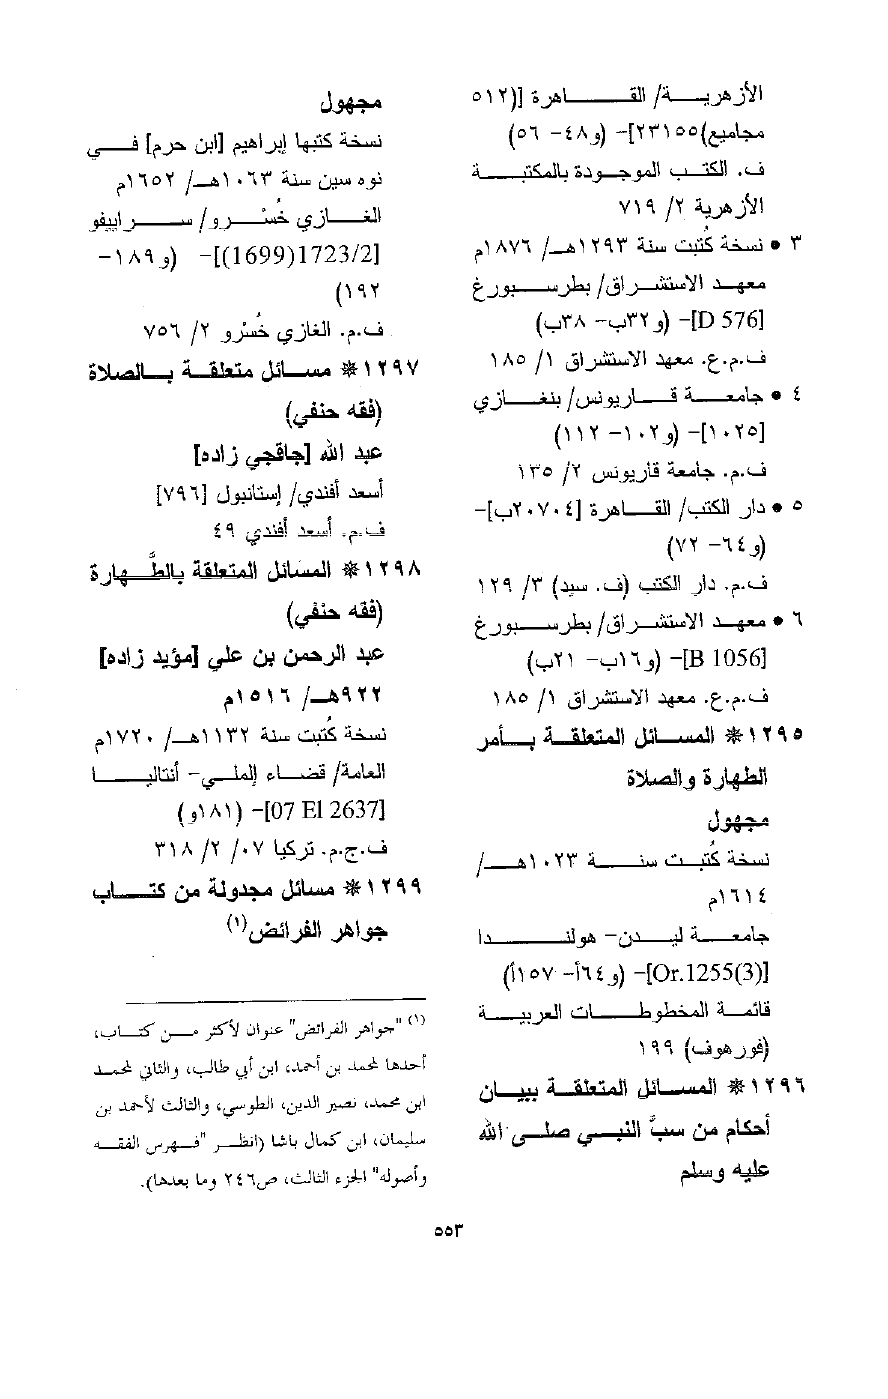 الأزهرية/ القاهرة [(٥١٢
مجاميع)٢٣١٥٥]- (و٤٨- ٥٦)
ف. الكتب الموجودة بالمكتبة
الأزهرية ٢/ ٧١٩
٣ • نسخة كُتبت سنة ١٢٩٣هـ/ ١٨٧٦م
معهد الاستشراق/ بطرسبورغ
[D 576]- (و٣٢ب- ٣٨ب)
ف.م.ع. معهد الاستشراق ١/ ١٨٥
٤ • جامعة قاريونس/ بنغازي
[١٠٢٥]- (و١٠٢- ١١٢)
ف.م. جامعة قاريونس ٢/ ١٣٥
٥ • دار الكتب/ القاهرة [٢٠٧٠٤ب]-
(و٦٤- ٧٢)
ف.م. دار الكتب (ف. سيد) ٣/ ١٢٩
٦ • معهد الاستشراق/ بطرسبورغ
[B 1056]- (و١٦ب- ٢١ب)
ف.م.ع. معهد الاستشراق ١/ ١٨٥
١٢٩٥ * المسائل المتعلقة بأمر
الطهارة والصلاة
مجهول
نسخة كُتبت سنة ١٠٢٣هـ/
١٦١٤م
جامعة ليدن- هولندا
[Or.1255(3)]- (و٦٤أ- ١٥٧أ)
قائمة المخطوطات العربية
(فورهوف) ١٩٩
١٢٩٦ * المسائل المتعلقة ببيان
أحكام من سبَّ النبي صلى الله
عليه وسلم
مجهول
نسخة كتبها إبراهيم [ابن حرم] في
نوه سين سنة ١٠٦٣هـ/ ١٦٥٢م
الغازي خُسْرو/ سراييفو
[1723/2(1699)]- (و١٨٩-
١٩٢)
ف.م. الغازي خُسْرو ٢/ ٧٥٦
١٢٩٧ * مسائل متعلقة بالصلاة
(فقه حنفي)
عبد الله [جاقجي زاده]
أسعد أفندي/ إستانبول [٧٩٦]
ف.م. أسعد أفندي ٤٩
١٢٩٨ * المسائل المتعلقة بالطَّهارة
(فقه حنفي)
عبد الرحمن بن علي [مؤيد زاده]
٩٢٢هـ/ ١٥١٦م
نسخة كُتبت سنة ١١٣٢هـ/ ١٧٢٠م
العامة/ قضاء إلملي- أنتاليا
[07 El 2637]- (١٨١و)
ف.ج.م. تركيا ٠٧/ ٢/ ٣١٨
١٢٩٩ * مسائل مجدولة من كتاب
جواهر الفرائض(١)
(١) "جواهر الفرائض" عنوان لأكثر من كتاب،
أحدها لمحمد بن أحمد، ابن أبي طالب، والثاني لمحمد
ابن محمد، نصير الدين، الطوسي، والثالث لأحمد بن
سليمان، ابن كمال باشا (انظر "فهرس الفقه
وأصوله" الجزء الثالث، ص٢٤٦ وما بعدها).
٥٥٣